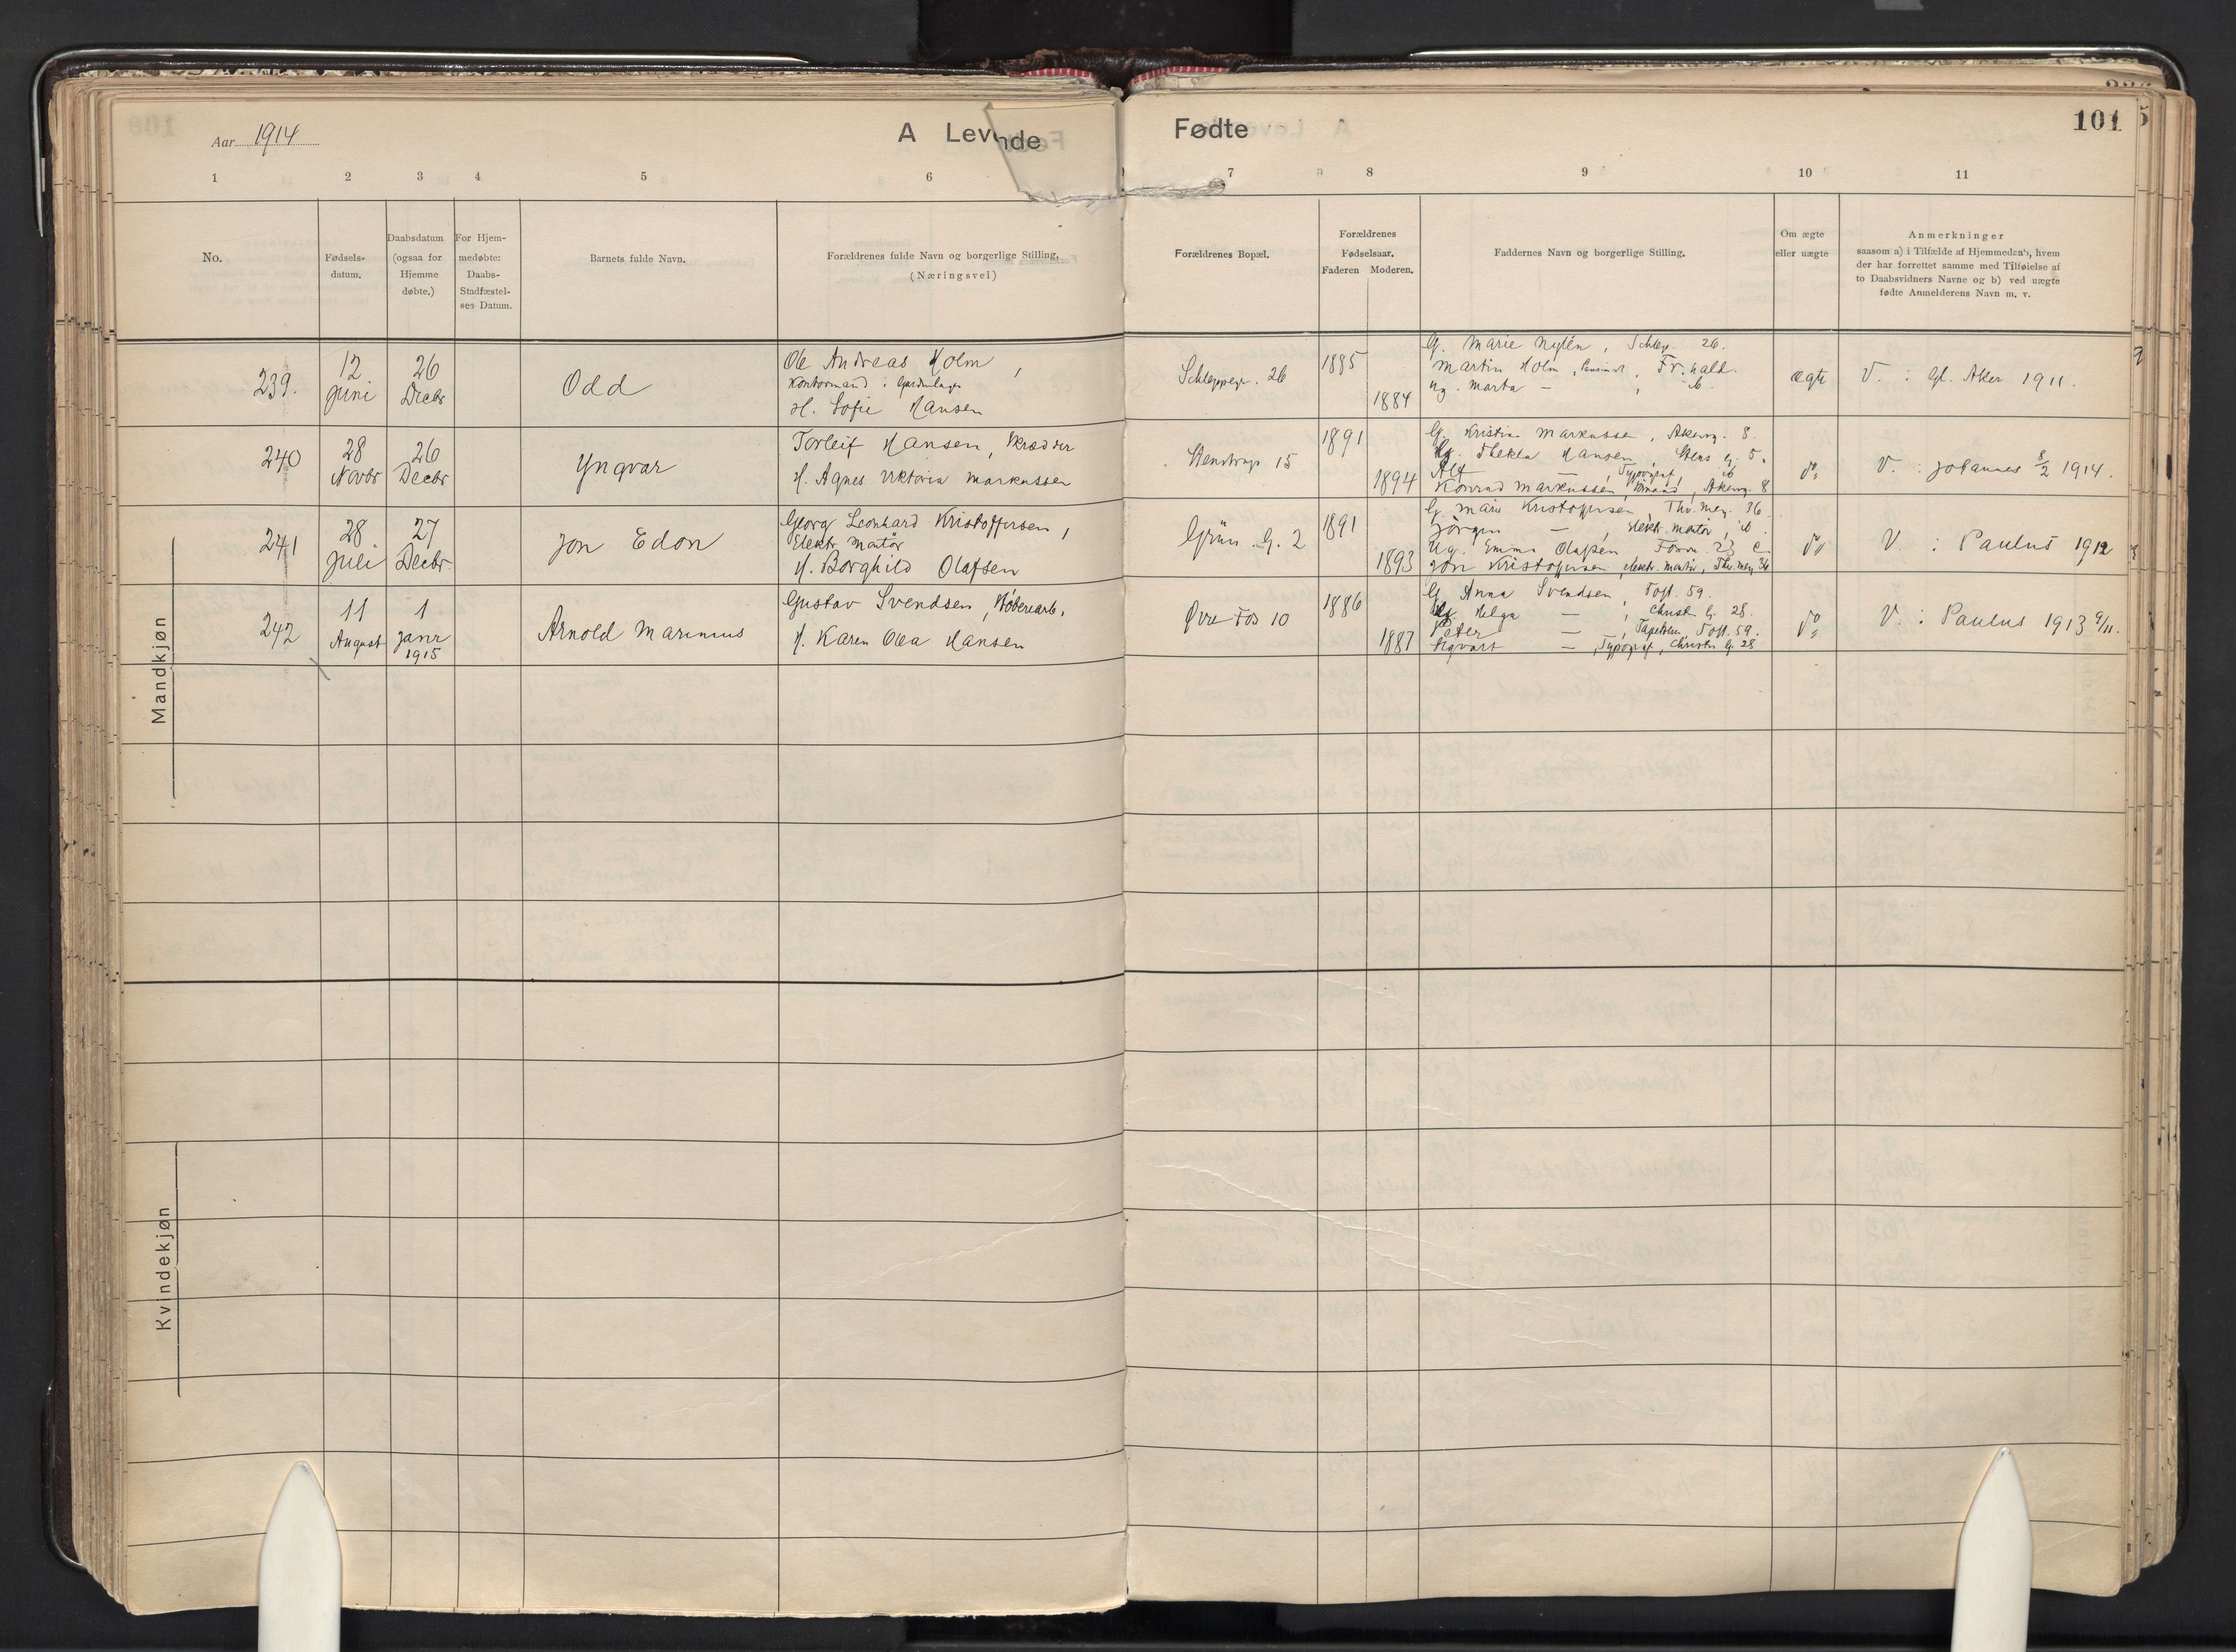 Aar 1914
A Levende
Fødte
101
1 2 3 4 5 6 7 8 9 10 11
No.
Fødsels-
datum.
Daabsdatum
(ogsaa for
Hjemme
døbte.)
For Hjem-
medøbte:
Daabs-
Stadfæstel-
ses Datum.
Barnets fulde Navn.
Forældrenes fulde Navn og borgerlige Stilling.
(Næringsvei)
Forældrenes Bopæl.
Forældrenes
Fødselsaar.
Faderen Moderen.
Faddernes Navn og borgerlige Stilling.
Om ægte
eller uægte
Anmerkninger
saasom a) i Tilfælde af Hjemmedøn's, hvem
der har forrettet samme med Tilføielse af
to Daabsvidners Navne og b) ved uægte
fødte Anmelderens Navn m. v.
Mandkjøn
239.
12
Juni
26
Decbr
Odd
Ole Andreas Holm,
Kontormand i
H. Sofie Hansen
Schleppegr. 26
1885
1884
G. Marie Nylén, Schlep. 26.
Martin Holm, Fr.hald.
Ug. Marta — , ib.
ægte
V. : Gl. Aker 1911.
240
28
Novbr
26
Decbr
Yngvar
Torleif Hansen, Skrædder
H. Agnes Viktoria Markussen
Stenstrup 15
1891
1894
G. Kristin Markussen, Akersv. 8.
Ug. Thekla Hansen, Stens g. 5.
Alf — , Typograf, ib
Konrad Markussen, Akersv. 8
do
V. : Johannes 8/2 1914.
241
28
Juli
27
Decbr.
Jon Edon
Georg Leonhard Kristoffersen,
Elektr. Montør
H. Borghild Olafsen
Grün. G. 2
1891
1893
G. Marie Kristoffersen Thv. Mey. 36
Jørgen — , elektr. montør, ib.
Ug. Emma Olafsen Fossv. 23 c
Jon Kristoffersen, elektr. montør, Thv. Mey. 36
do
V. : Paulus 1912
242
11
August
1
Janr
1915
Arnold Marinius
Gustav Svendsen, Støberiarb.
H. Karen Olea Hansen
Øvre Fos 10
1886
1887
G. Anna Svendsen, Toft. 59.
Ug. Helga — , Christ. G. 28.
Peter — , Tapetsen. Toft. 59.
Sigvart — , Typograf, Christ. G. 28
do
V. : Paulus 1913 9/11.
Kvindekjøn